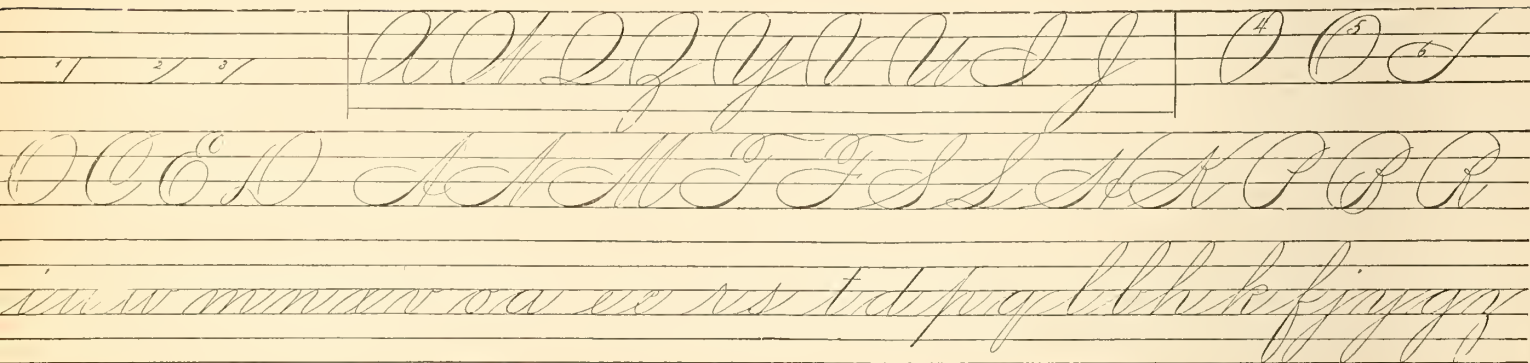 1 2 3 X W Q Z Y V U I J 4 5 6
O C E D A N M T F S L H K P B R
i u w m n x v o a e c r s t d p q l b h k f j y g z